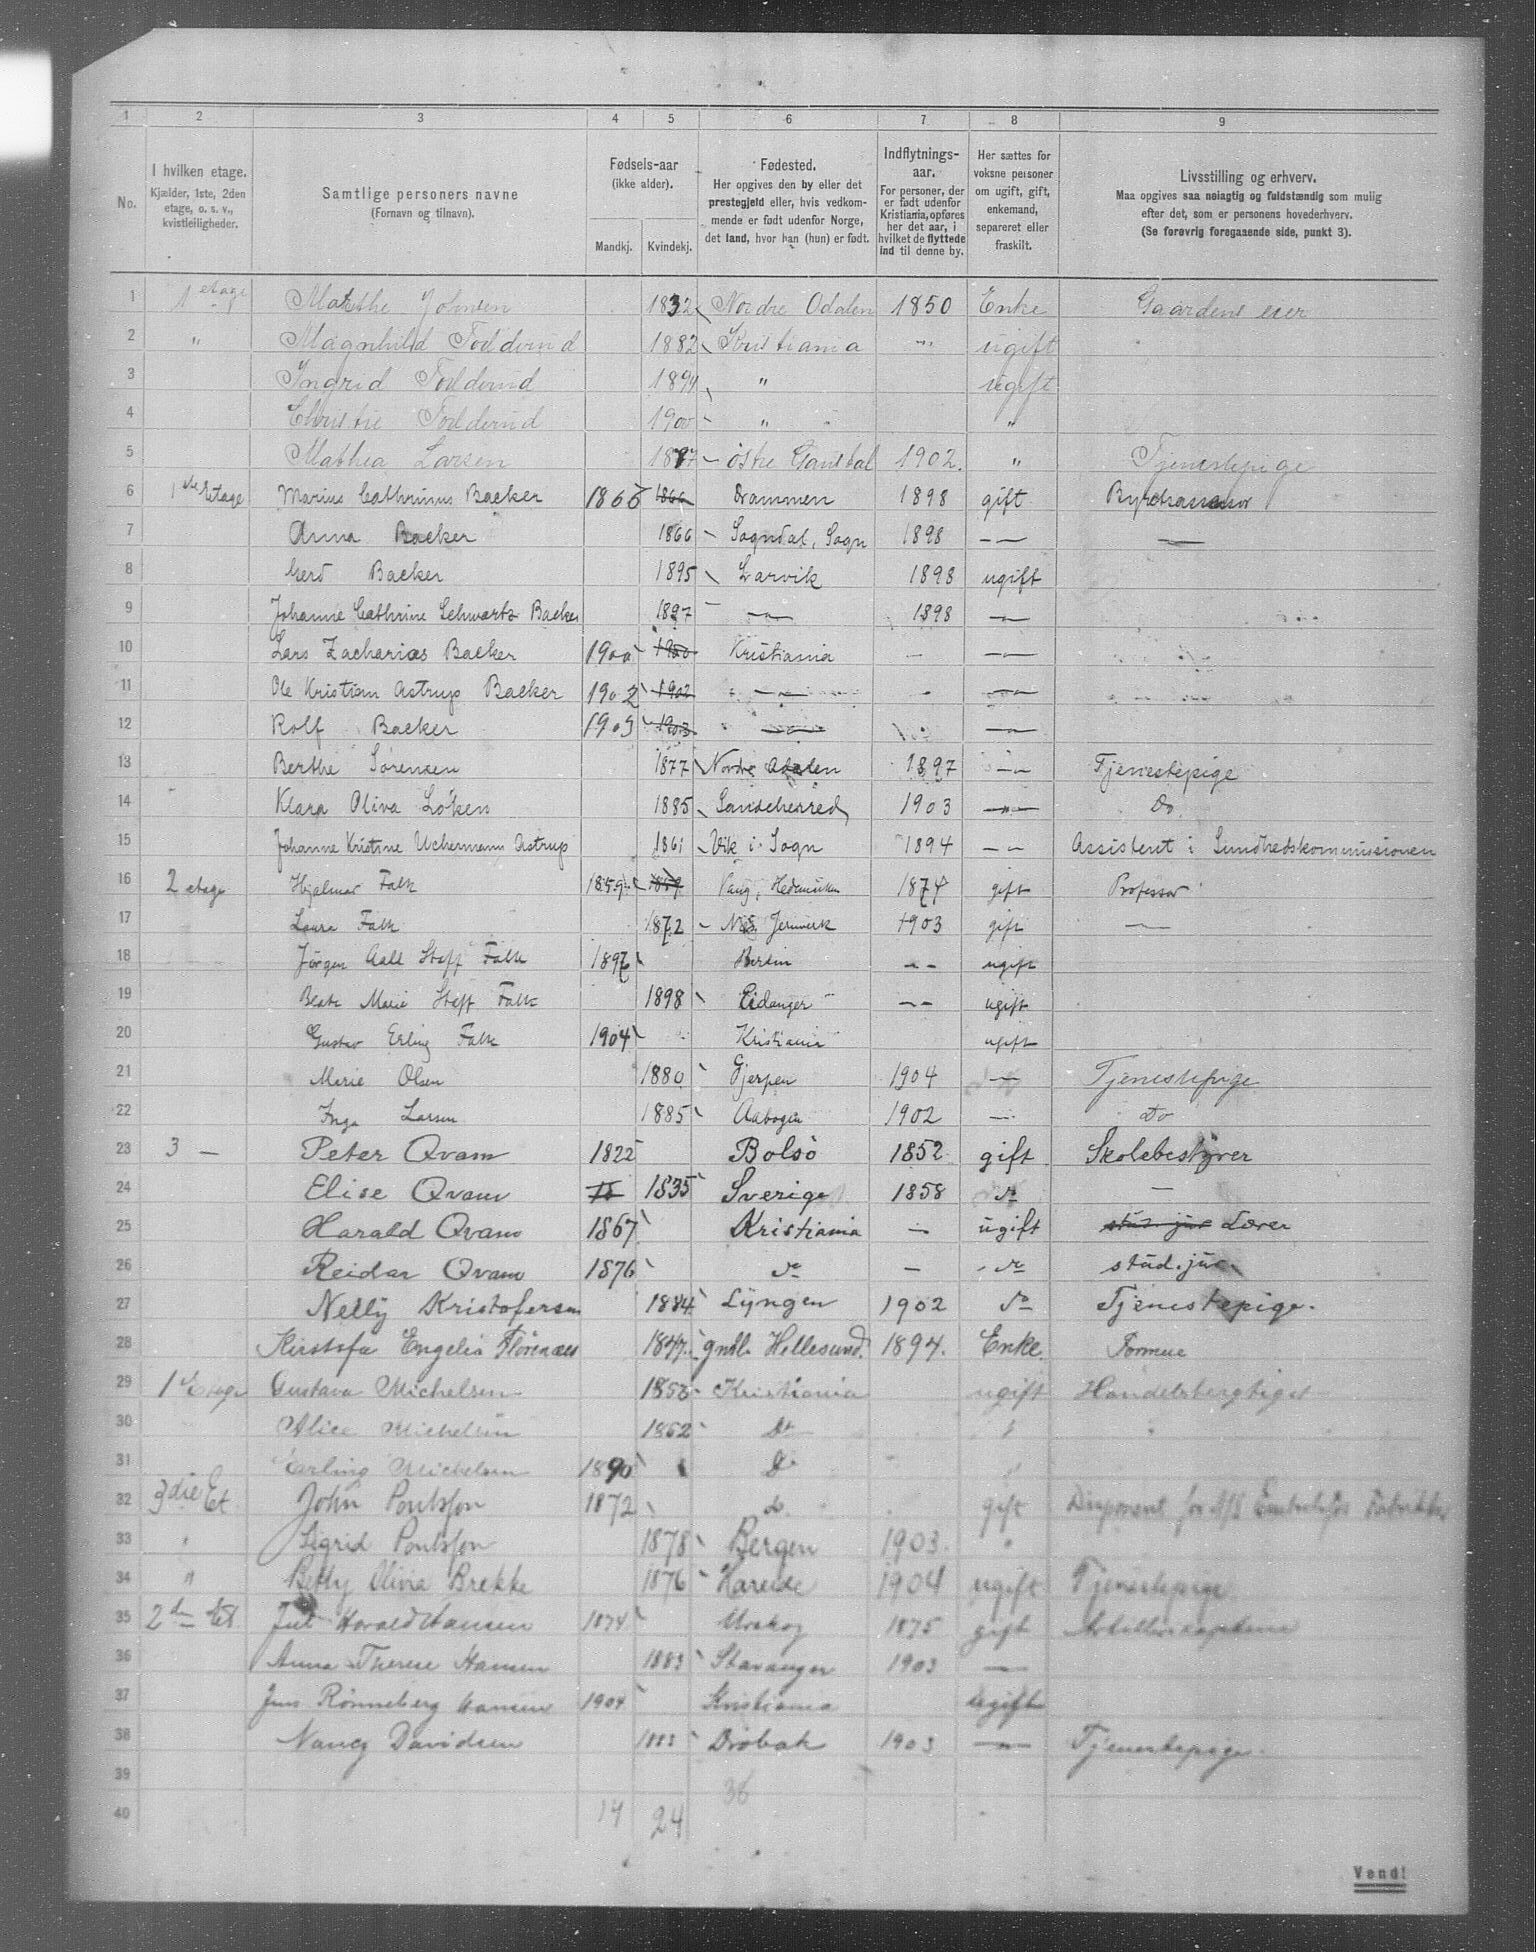 1 2 3 4 5 6 7 8 9
No.
I hvilken etage.
Kjælder, 1ste, 2den
etage, o. s. v.,
kvistleiligheder.
Samtlige personers navne
(Fornavn og tilnavn).
Fødsels-aar
(ikke alder).
Mandkj. Kvindekj.
Fødested.
Her opgives den by eller det
prestegjeld eller, hvis vedkom-
mende er født udenfor Norge,
det land, hvor han (hun) er født.
Indflytnings-
aar.
For personer, der
er født udenfor
Kristiania, opføres
her det aar, i
hvilket de flyttede
ind til denne by.
Her sættes for
voksne personer
om ugift, gift,
enkemand,
separeret eller
fraskilt.
Livsstilling og erhverv.
Maa opgives saa nøiagtig og fuldstændig som mulig
efter det, som er personens hovederhverv.
(Se forøvrig foregaaende side, punkt 3).
1 1 etage Marthe Johnsen 1832 Nordre Odalen 1850 Enke Gaardens eier
2 " Magnhild 1882 Kristiania " ugift
3 Ingrid 1894 " ugift
4 Christie 1900 " "
5 Mathea Larsen 1877 Østre 1902. " Tjenestepige
6 1ste Etage Marius Cathrinus Backer 1866 1866 Drammen 1898 gift Byretsassessor
7 Anna Backer 1866 Sogndal, Sogn 1898 — —
8 Gerd Backer 1895 Larvik 1898 ugift
9 Johanne Cathrine Schwartz Backer 1897 — 1898 —
10 Lars Zacharias Backer 1900 1900 Kristiania — —
11 Ole Kristian Astrup Backer 1902 1902 — —
12 Rolf Backer 1903 1903 — —
13 Berthe Sørensen 1877 Nordre Odalen 1897 — Tjenestepige
14 Klara Oliva Løken 1885 Sandeherred 1903 — Do
15 Johanne Kristine Uchermann Astrup 1861 Vik i Sogn 1894 — Assistent i Sundhedskommissionen
16 2 etage Hjalmar Falk 1859 1859 Vang, Hedemarken 1874 gift Professor
17 Laura Falk 1872 Næs Jernverk 1903 gift —
18 Jørgen Aall Steff Falk 1897 Berlin — ugift
19 Beate Marie Steff Falk 1898 Eidanger — ugift
20 Gustav Erling Falk 1904 Kristiania ugift
21 Marie Olsen 1880 Gjerpen 1904 — Tjenestepige
22 Inga Larsen 1885 Aabogen 1902 — Do
23 3 — Peter Qvam 1822 Bolsø 1852 gift Skolebestyrer
24 Elise Qvam 18 1835 Sverige 1858 do —
25 Harald Qvam 1867 Kristiania — ugift stud. jur Lærer
26 Reidar Qvam 1876 do — do stud. jur.
27 Nelly Kristofersen 1884 Lyngen 1902 do Tjenestepige.
28 Engelia 1847 Hellesund. 1894. Enke. Formue
29 1ste Etage Gustava Michelsen 1858 Kristiania ugift Handelsberettiget
30 Alice Michelsen 1862 Do "
31 Erling Michelsen 1890 Do "
32 3die Et John Poulsson 1872 do gift Disponent for A/S Fabrikker
33 " Sigrid Poulsson 1878 Bergen 1903. "
34 " Betty Olivia Brekke 1876 Hareide 1904 ugift Tjenestepige
35 2den Et. Jul Harald Hansen 1874 Urskog 1875 gift
36 Anna Therese Hansen 1883 Stavanger 1903 —
37 Jens Rønneberg Hansen 1904 Kristiania ugift
38 Nancy Davidsen 1883 Drøbak 1903 — Tjenestepige.
39 38
40 14 24
Vend!